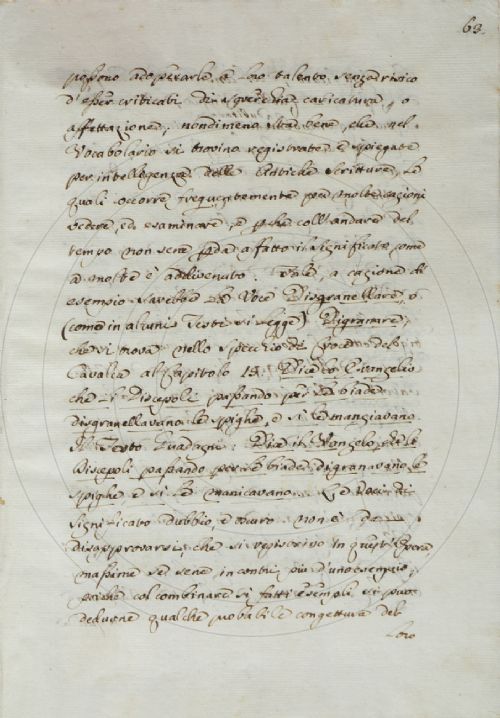 63.
possono adoperarle à loro talento senza risico
d'esser criticati di soverchia caricatura, o
affettazione; nondimeno sta bene, che nel
Vocabolario si trovino registrate e spiegate
per intelligenza delle Antiche Scritture, le
quali occorre frequentemente per molte cagioni
vedere, ed esaminare, e pche coll'andare del
tempo non sene pda affatto il significato, come
a molte è addivenuto. Tale, a cagione di
esempio sarebbe la Voce Disgranellare, ò
(come in alcuni Testi si legge) Digranare,
che si trova nello Specchio de' Peccati del
Cavalca al Capitolo 12. Dice lo Evangelio
che li Discepoli passando per le biade
disgranellavano le spighe, e si le mangiavano.
Il Testo Guadagni: Dice il Vangelo, che le
Discepoli passando per le biade digranavano le
spighe e si le manicavano. Le Voci di
significato dubbio, e oscuro non è da
disapprovarsi che si registrino in quest'Opera
massime se sene incontri più d'uno esempio,
poichè col combinare sì fatti esempli si puo
dedurne qualche probabile congettura del
loro